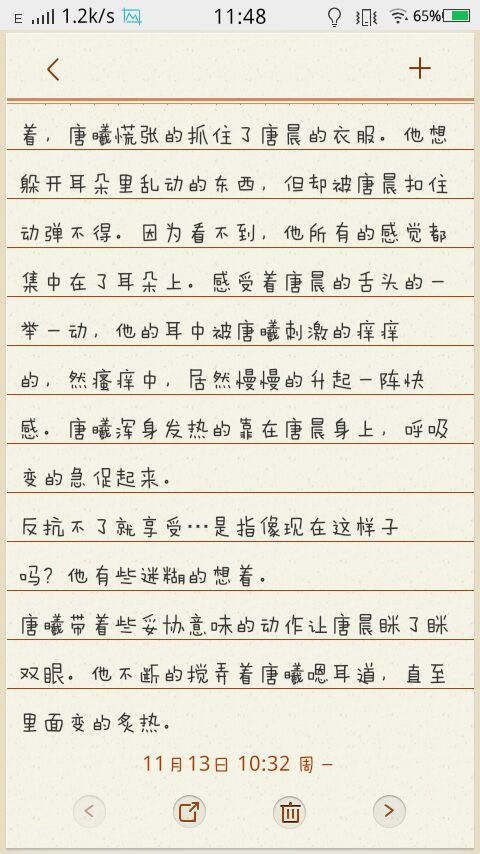 E 1.2k/s 11:48 65%
着，唐曦慌张的抓住了唐晨的衣服。他想
躲开耳朵里乱动的东西，但却被唐晨扣住
动弹不得。因为看不到，他所有的感觉都
集中在了耳朵上。感受着唐晨的舌头的一
举一动，他的耳中被唐曦刺激的痒痒
的，然瘙痒中，居然慢慢的升起一阵快
感。唐曦浑身发热的靠在唐晨身上，呼吸
变的急促起来。
反抗不了就享受…是指像现在这样子
吗？他有些迷糊的想着。
唐曦带着些妥协意味的动作让唐晨眯了眯
双眼。他不断的搅弄着唐曦嗯耳道，直至
里面变的炙热。
11月13日 10:32 周一